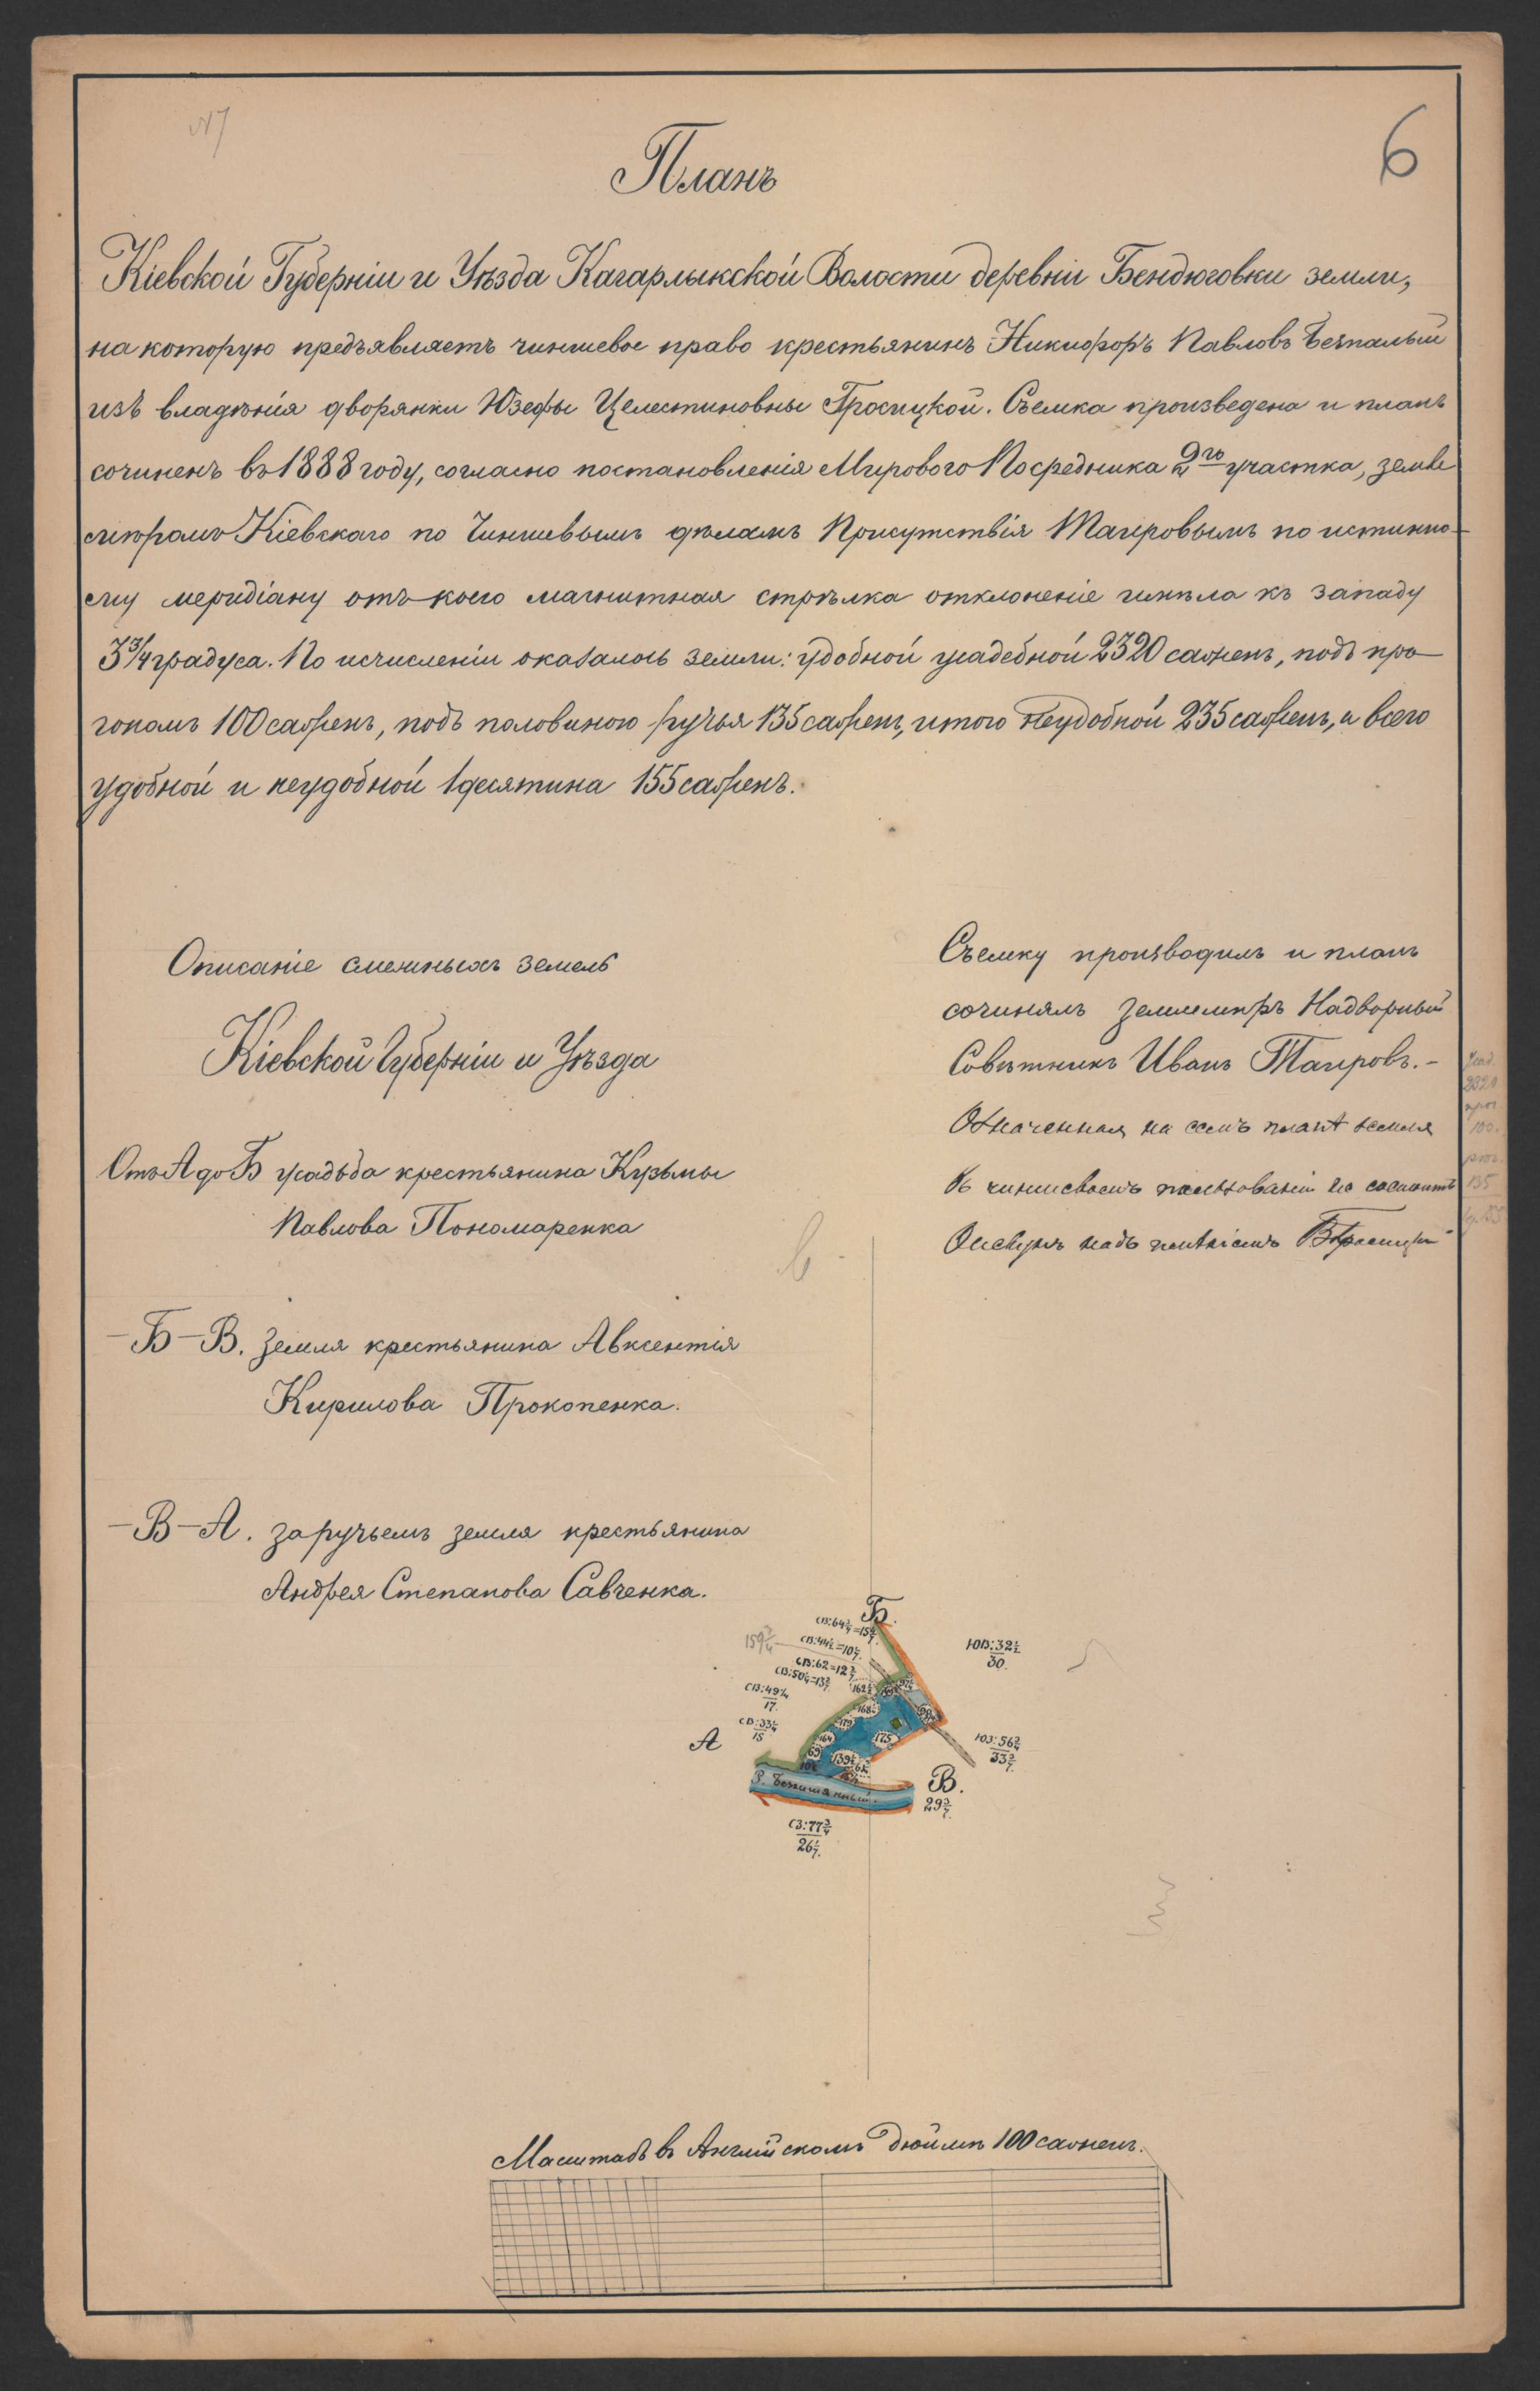 №7
6
Планъ
Кіевской Губерніи и Уѣзда Кагарлыкской Волости деревни Бендюговки земли,
на которую предъявляетъ чиншевое право крестьянинъ Никифоръ Павловъ Безпалый
изъ владѣнія дворянки Юзефы Целестиновны Тросицкой. Съемка произведена и планъ
сочиненъ въ 1888 году, согласно постановленія Мирового Посредника 2го участка, земле
мѣромъ Кіевскаго по Чиншевымъ дѣламъ Присутствія Таировымъ по истинно-
му меридіану отъ коего магнитная стрѣлка отклоненіе имѣла къ западу
3¾ градуса. По исчисленіи оказалось земли: удобной усадебной 2320 саженъ, подъ про
гономъ 100 саженъ, подъ половиною ручья 135 саженъ, итого неудобной 235 саженъ, а всего
удобной и неудобной 1 десятина 155 саженъ.
Описаніе смежныхъ земель
Кіевской Губерніи и Уѣзда
Отъ А до Б усадьба крестьянина Кузьмы
Павлова Пономаренка
—Б—В. земля крестьянина Авксентія
Кирилова Прокопенка.
—В—А. за ручьемъ земля крестьянина
Андрея Степанова Савченка.
Съемку производилъ и планъ
сочинялъ землемѣръ Надворный
Совѣтникъ Иванъ Таировъ.—
Означенная на семъ планѣ земля
въ чиншевомъ пользованіи не состоитъ
Опекунъ надъ имѣніемъ
Усад.
2320
прог.
100.
руч.
135
в
Б.
СВ:64¾=15
СВ:44½=10
СВ:62=12
СВ:50¼=13
СВ:49¼
17.
СВ:33¼
15
159¾
А
ЮВ:32½
30.
ЮЗ:56¾
33
В.
29
СЗ:77¾
26
Р. Безимянный.
175
179
164
69
Масштабъ въ Англійскомъ дюймѣ 100 саженъ.